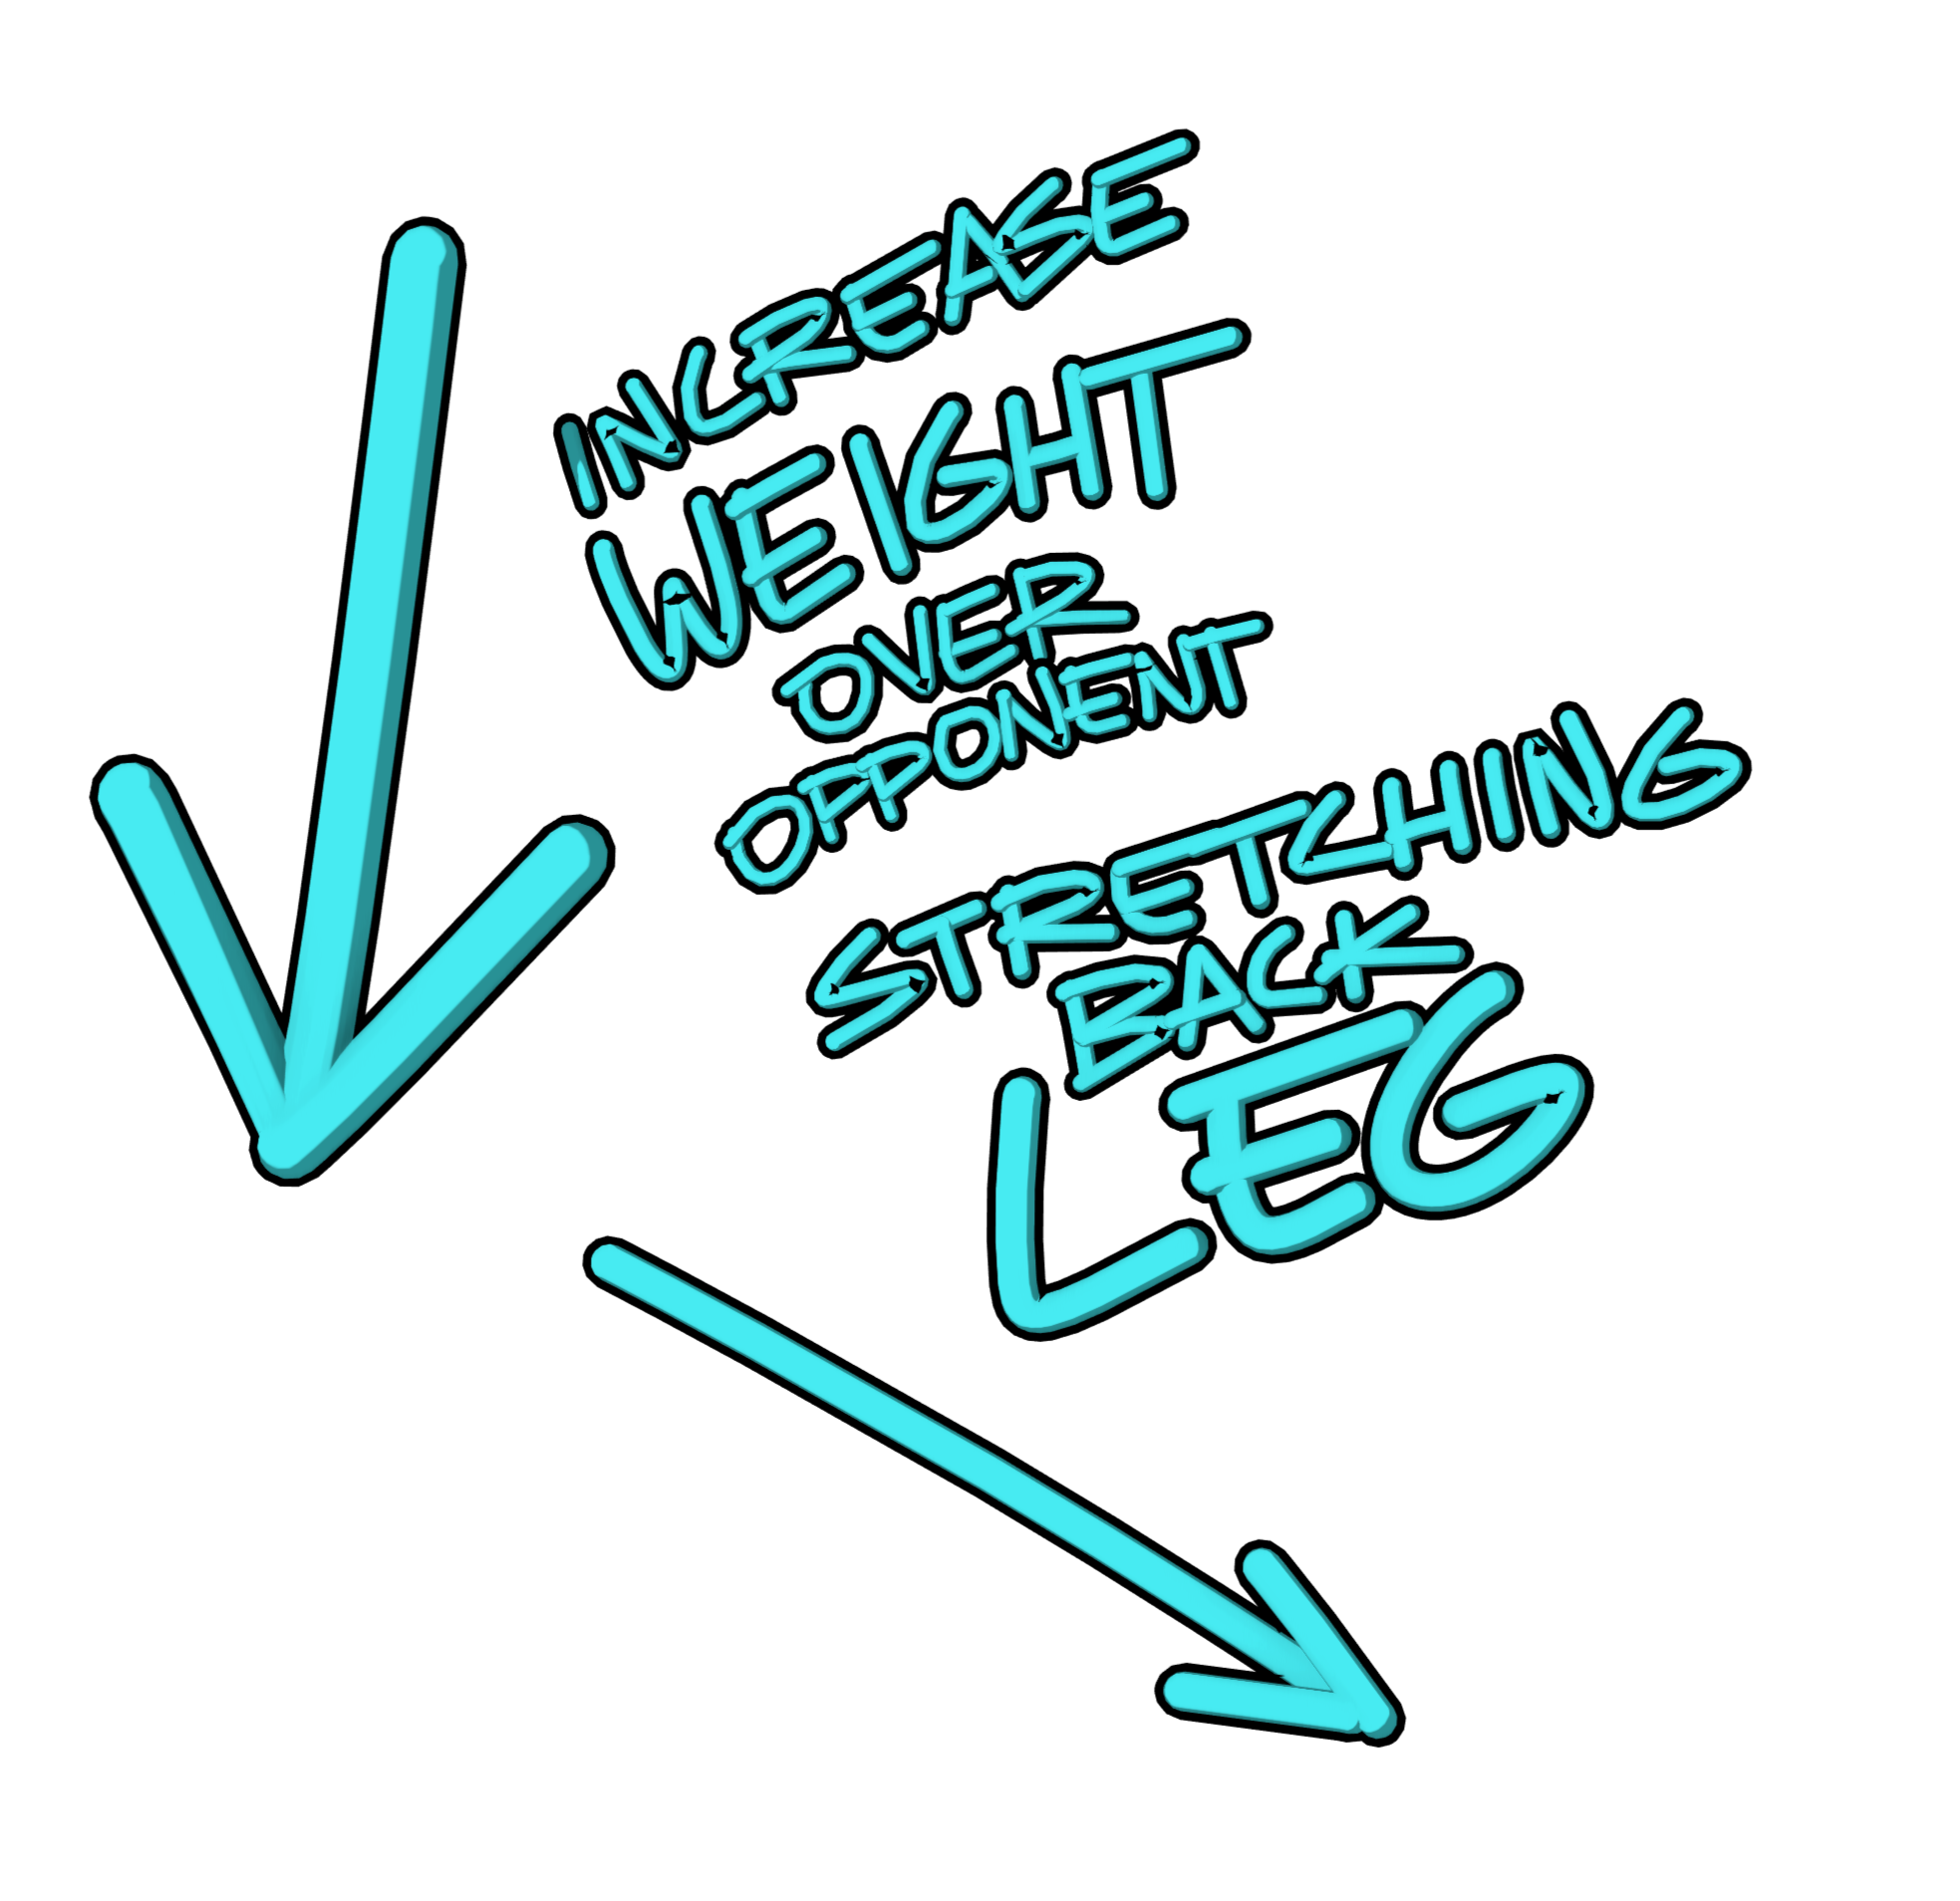 INCREASE
WEIGHT
OVER
OPPONENT
STRETCHING
BACK
LEG